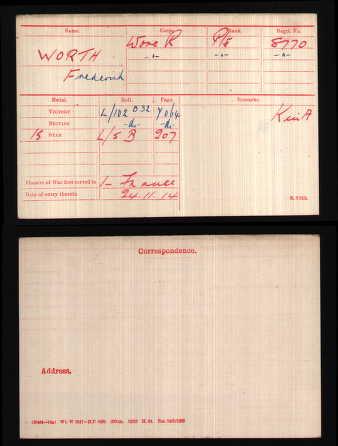 Name. Corps. Rank. Regtl. No.
WORTH Worc R Pte 8770
Frederick -"- -"- -"-
Medal. Roll. Page. Remarks.
VICTORY L/102 B32 7064 KinA
BRITISH -do- -do-
15 STAR L/5 B 907
Theatre of War first served in 1- France
Date of entry therein 24.11.14
K. 1380.
Correspondence.
Address.